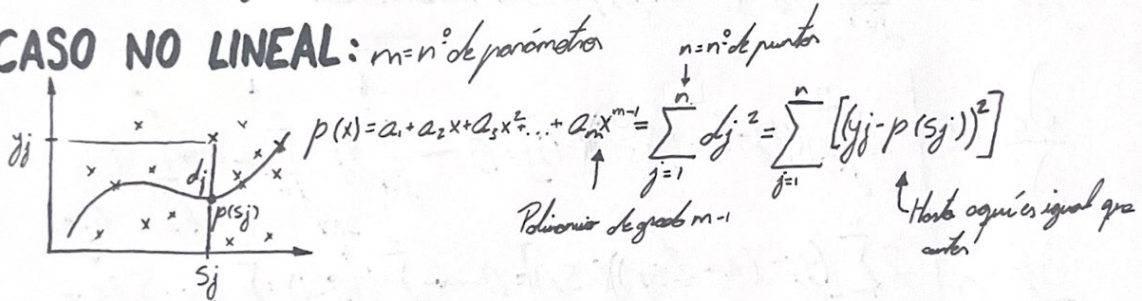 CASO NO LINEAL: m=nº de parámetros
n=nº de puntos
yj
dj
p(sj)
sj
p(x)=a₁+a₂x+a₃x²+...+aₘxᵐ⁻¹= ∑ⁿⱼ₌₁ dj²= ∑ⁿⱼ₌₁ [(yj-p(sj))²]
Polinomio de grado m-1
Hasta aquí es igual que
antes